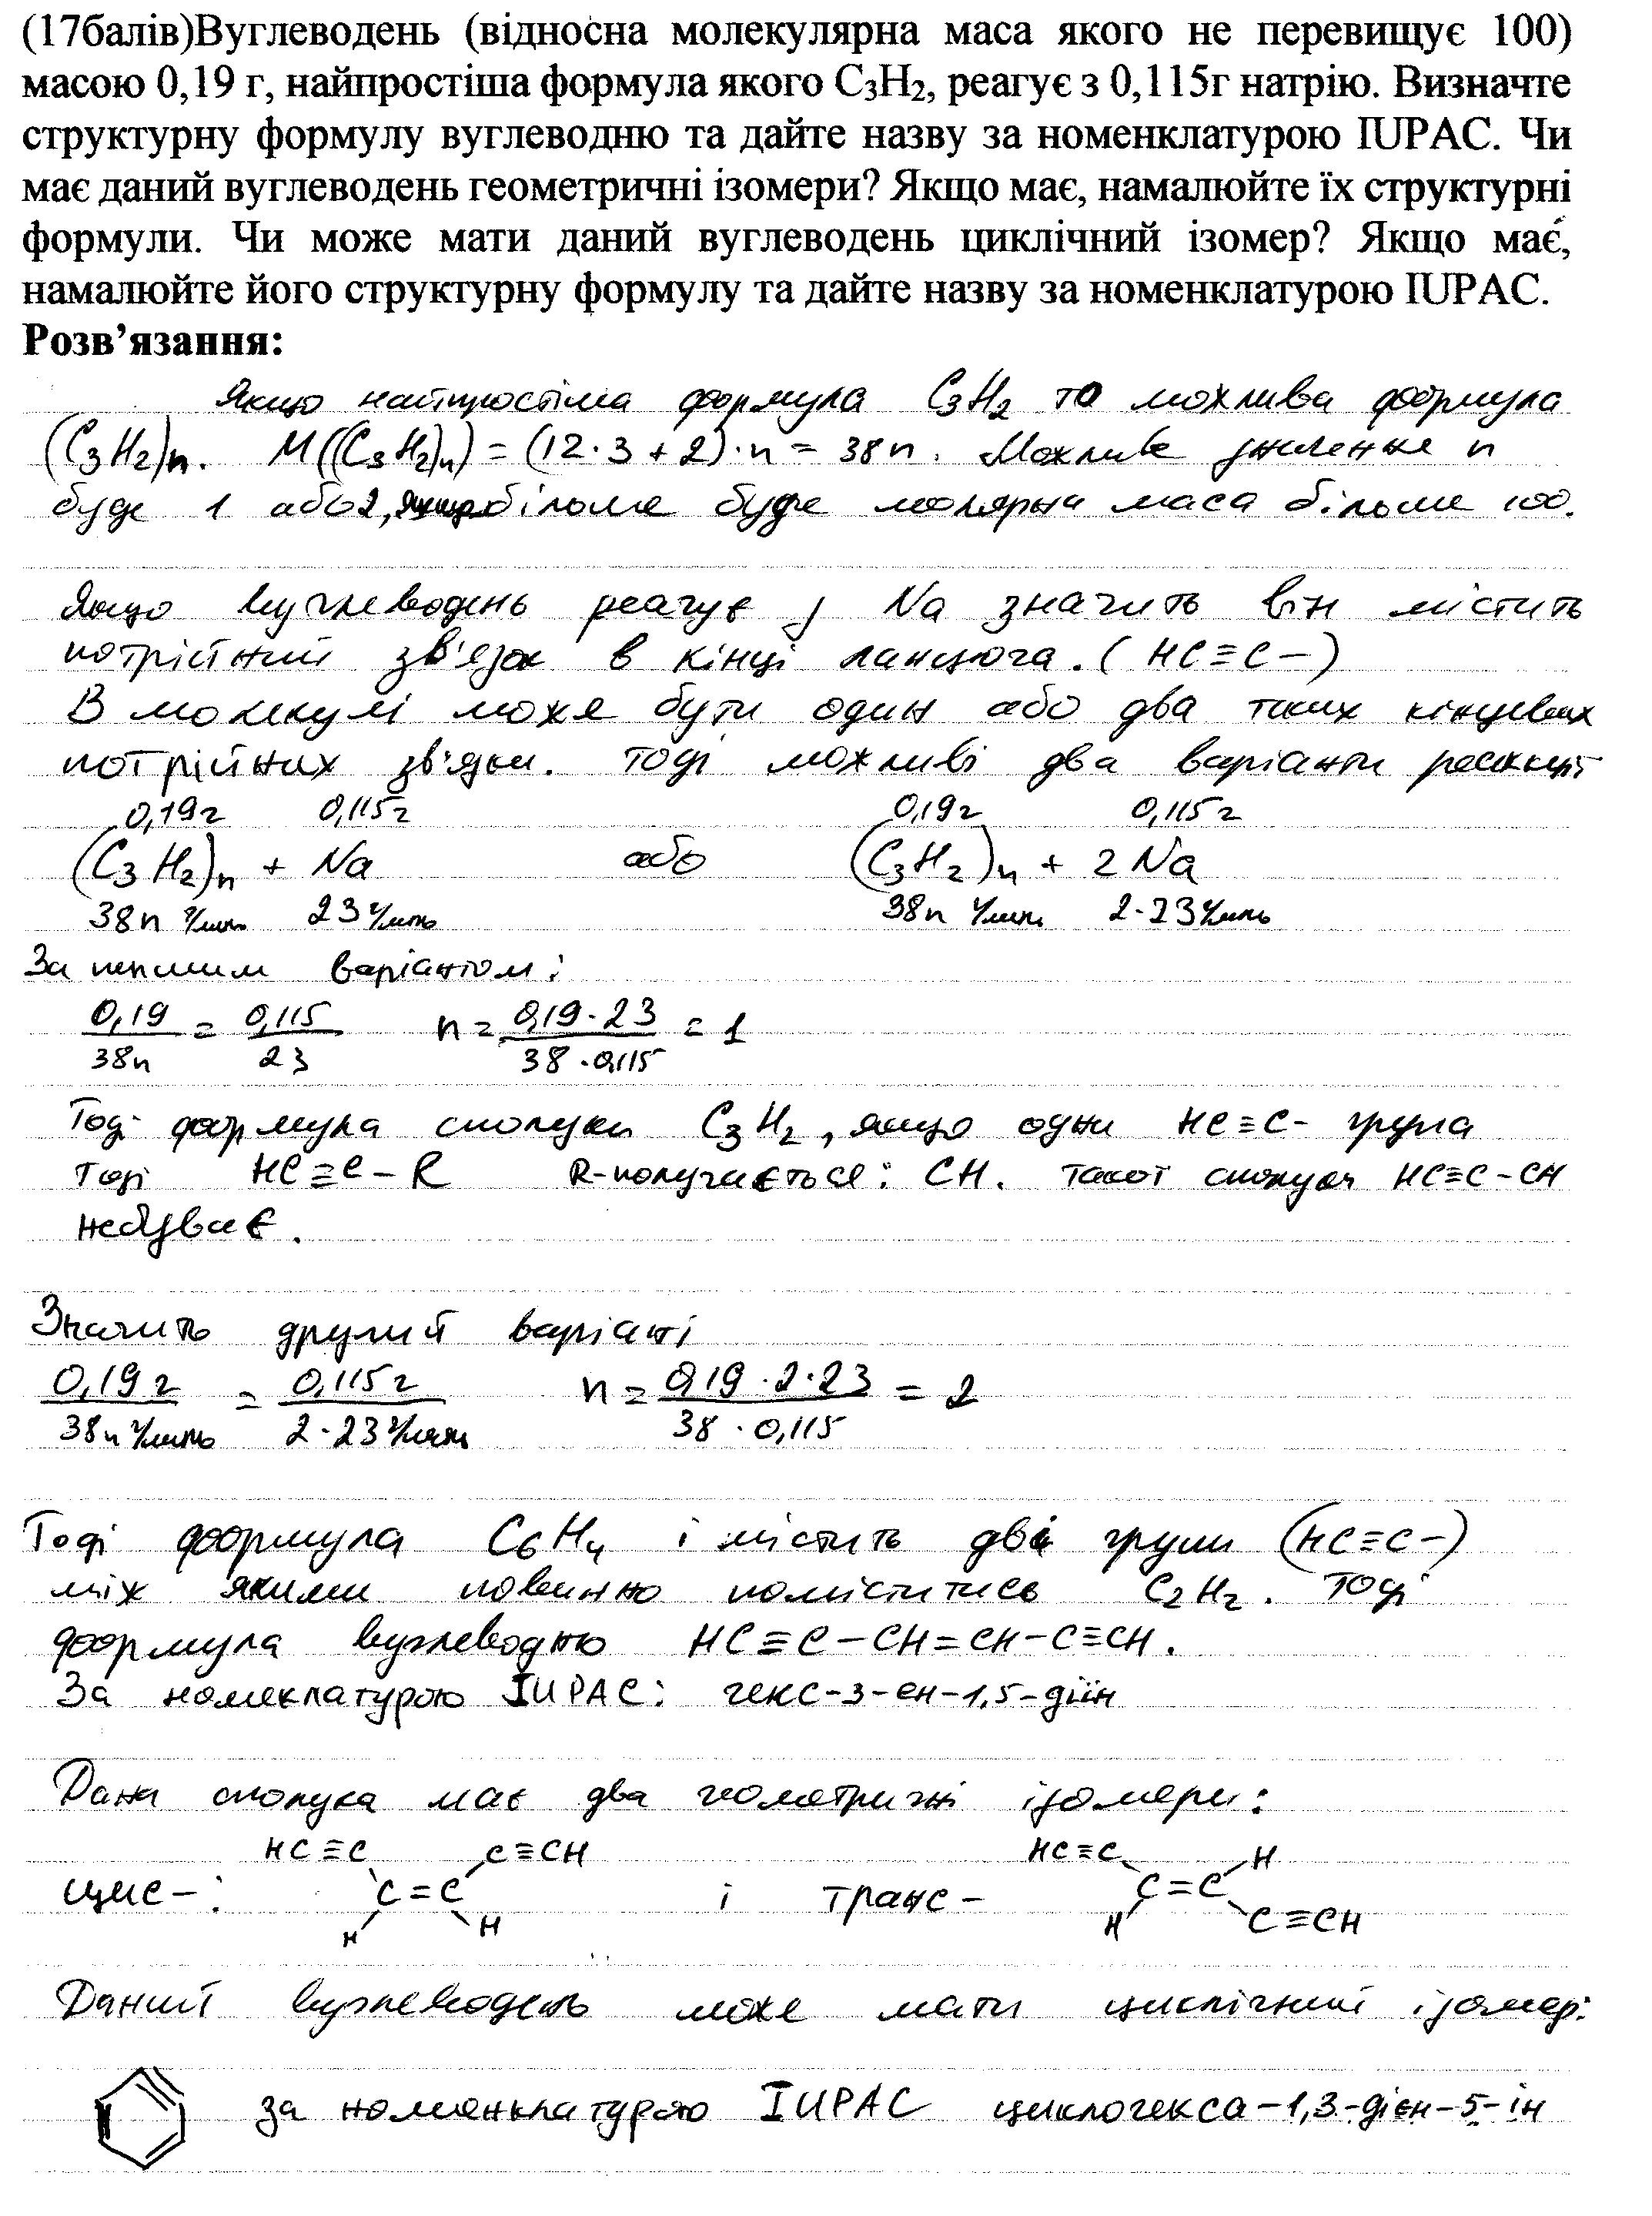 (17балів)Вуглеводень (відносна молекулярна маса якого не перевищує 100)
масою 0,19 г, найпростіша формула якого C₃H₂, реагує з 0,115г натрію. Визначте
структурну формулу вуглеводню та дайте назву за номенклатурою IUPAC. Чи
має даний вуглеводень геометричні ізомери? Якщо має, намалюйте їх структурні
формули. Чи може мати даний вуглеводень циклічний ізомер? Якщо має,
намалюйте його структурну формулу та дайте назву за номенклатурою IUPAC.
Розв’язання:
Якщо найпростіша формула C₃H₂ то можлива формула
(C₃H₂)n. M((C₃H₂)n) = (12·3+2)·n = 38n. Можливе значення n
буде 1 або 2, більше буде молярна маса більше 100.
Якщо вуглеводень реагує з Na значить він містить
потрійний зв'язок в кінці ланцюга. (HC≡C–)
В молекулі може бути один або два таких кінцевих
потрійних зв'язки. Тоді можливі два варіанти реакції
0,19г 0,115г 0,19г 0,115г
(C₃H₂)n + Na або (C₃H₂)n + 2Na
38n г/моль 23 г/моль 38n г/моль 2·23 г/моль
За першим варіантом:
0,19/38n = 0,115/23 n = 0,19·23/38·0,115 = 1
Тоді формула сполуки C₃H₂, якщо одна HC≡C- група
тоді HC≡C–R R-получається: CH. такої сполуки HC≡C–CH
небуває.
Значить другий варіант
0,19г/38n г/моль = 0,115г/2·23 г/моль n = 0,19·2·23/38·0,115 = 2
Тоді формула C₆H₄ і містить дві групи (HC≡C–)
між якими повинно поміститись C₂H₂. Тоді
формула вуглеводню HC≡C–CH=CH–C≡CH.
За номеклатурою IUPAC: гекс-3-ен-1,5-діін
Дана сполука має два геометричні ізомери:
HC≡C C≡CH HC≡C H
цис–: C=C і транс– C=C
H H H C≡CH
Даний вуглеводень може мати циклічний ізомер:
за номенклатурою IUPAC циклогекса-1,3-дієн-5-ін